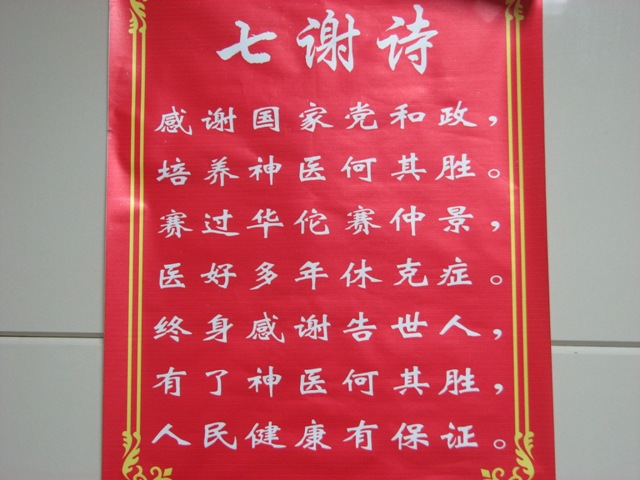 七谢诗
感谢国家党和政，
培养神医何其胜。
赛过华佗赛仲景，
医好多年休克症。
终身感谢告世人，
有了神医何其胜，
人民健康有保证。